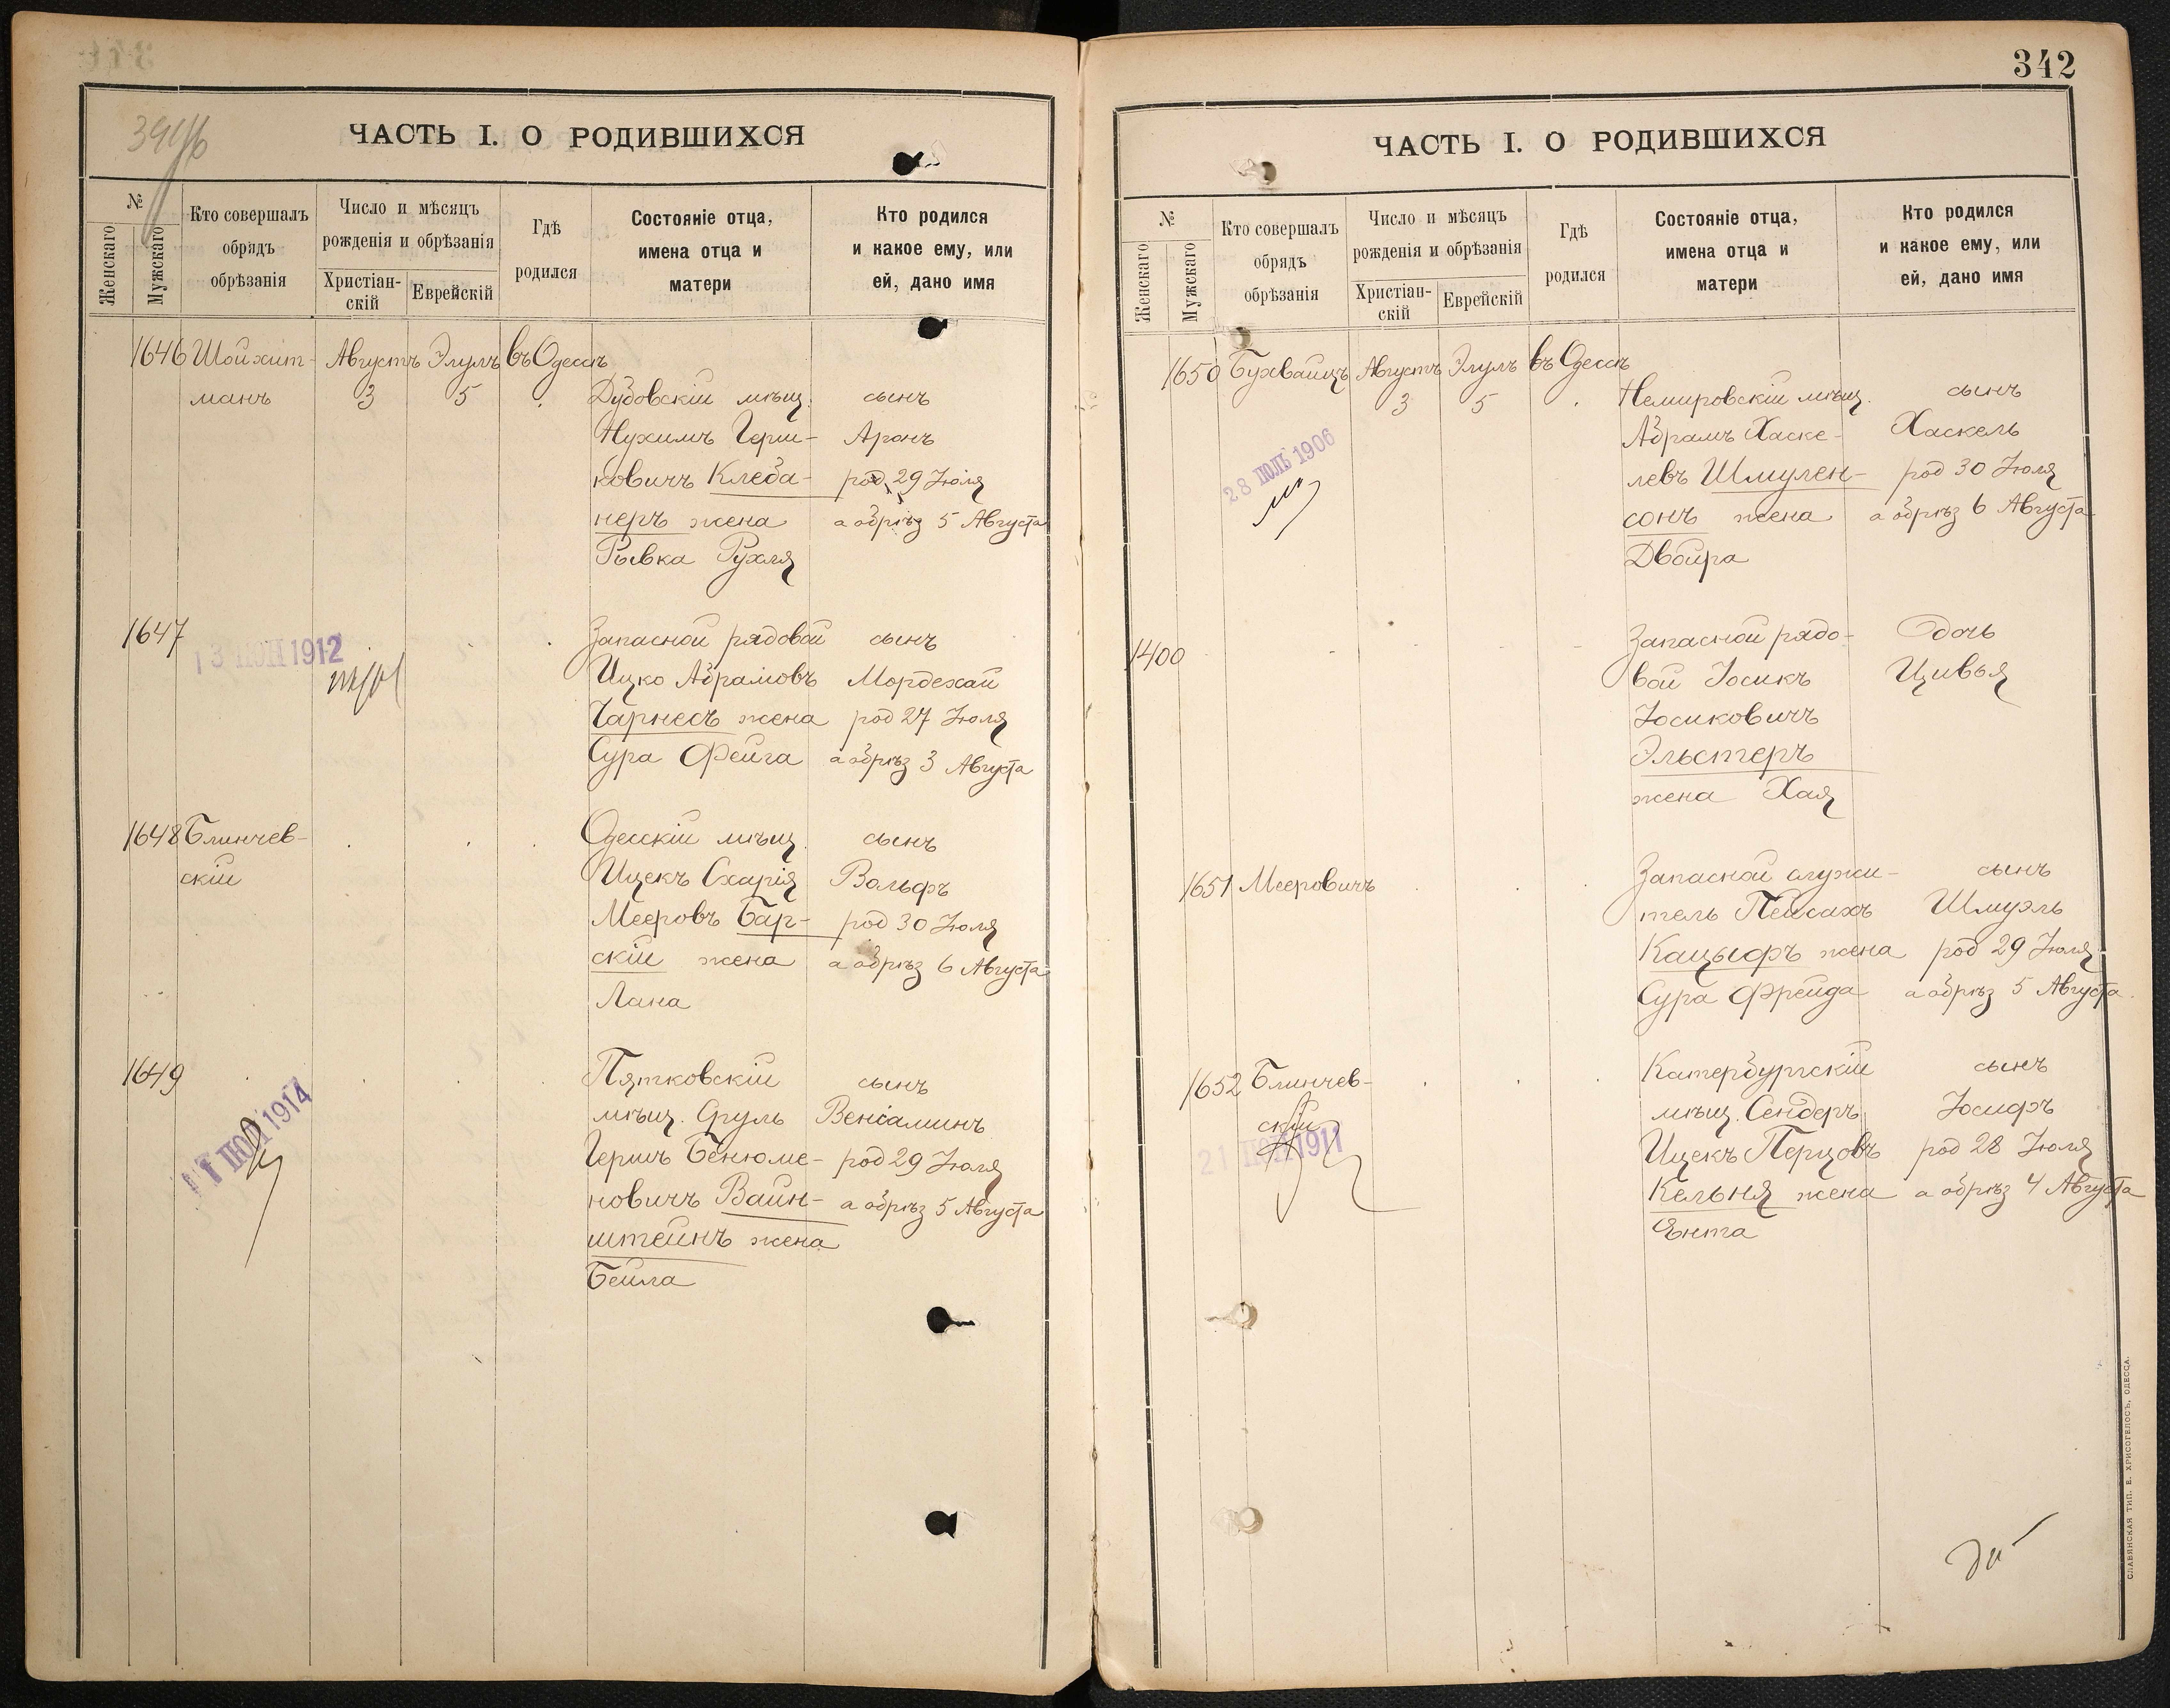 342
ЧАСТЬ I. О РОДИВШИХСЯ
№
Женскаго
Мужскаго
Кто совершалъ
обрядъ
обрѣзанія
Число и мѣсяцъ
рожденія и обрѣзанія
Христіан-
скій
Еврейскій
Гдѣ
родился
Состояніе отца,
имена отца и
матери
Кто родился
и какое ему, или
ей, дано имя
1646 Шойхит- Августъ Элулъ въ Одессѣ
манъ 3 5 Дубовскій мѣщ. сынъ
Нухимъ Герш- Аронъ
ковичъ Клеба- род 29 Іюля
неръ жена а обрѣз 5 Августа
Рывка Рухля
1647 Запасной рядовой сынъ
13 ІЮН 1912
Ицко Абрамовъ Мордехай
Чарнесъ жена род 27 Іюля
Сура Фейга а обрѣз 3 Августа
1648 Блинчев- Одесскій мѣщ. сынъ
скій Ицекъ Схарія Вольфъ
Мееровъ Бар- род 30 Іюля
скій жена а обрѣз 6 Августа
Лана
1649 Пятковскій сынъ
1914
мѣщ. Сруль Веніаминъ
Гершъ Бенюме- род 29 Іюля
новичъ Вайн- а обрѣз 5 Августа
штейнъ жена
Бейла
ЧАСТЬ I. О РОДИВШИХСЯ
№
Женскаго
Мужскаго
Кто совершалъ
обрядъ
обрѣзанія
Число и мѣсяцъ
рожденія и обрѣзанія
Христіан-
скій
Еврейскій
Гдѣ
родился
Состояніе отца,
имена отца и
матери
Кто родился
и какое ему, или
ей, дано имя
1650 Бухвайцъ Августъ Элулъ въ Одессѣ
3 5 Немировскій мѣщ. сынъ
Абрамъ Хаске- Хаскель
28 ІЮЛЬ 1906
левъ Шмулен- род 30 Іюля
сонъ жена а обрѣз 6 Августа
Двойра
1400 Запасной рядо- дочь
вой Іосикъ Цивья
Іосиковичъ
Эльстеръ
жена Хая
1651 Мееровичъ Запасной служи- сынъ
тель Пейсахъ Шмуэль
Кацыфъ жена род 29 Іюля
Сура Фрейда а обрѣз 5 Августа
1652 Блинчев- Катербургскій сынъ
скій мѣщ. Сендеръ Іосифъ
21 ІЮН 1911
Ицекъ Перцовъ род 28 Іюля
Кельня жена а обрѣз 4 Августа
Ента
СЛАВЯНСКАЯ ТИП. Е. ХРИСОГЕЛОСЪ, ОДЕССА.